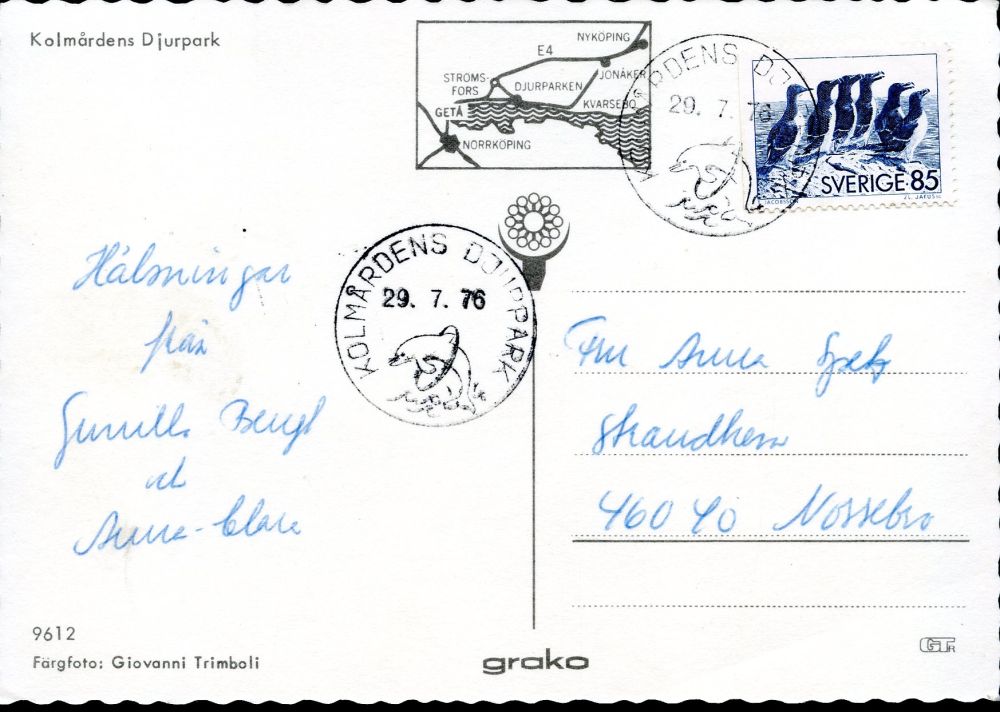 Kolmårdens Djurpark
NYKÖPING
E4
JONÅKER
STRÖMS-
FORS
DJURPARKEN
KVARSEBO
GETÅ
NORRKÖPING
KOLMÅRDENS DJURPARK
29. 7. 76
SVERIGE 85
JACOBSSON
KOLMÅRDENS DJURPARK
29. 7. 76
Hälsningar
från
Gunilla Bengt
och
Anna-Clara
Fru Anna
Strandhem
460 40 Nossebro
9612
Färgfoto: Giovanni Trimboli
grako